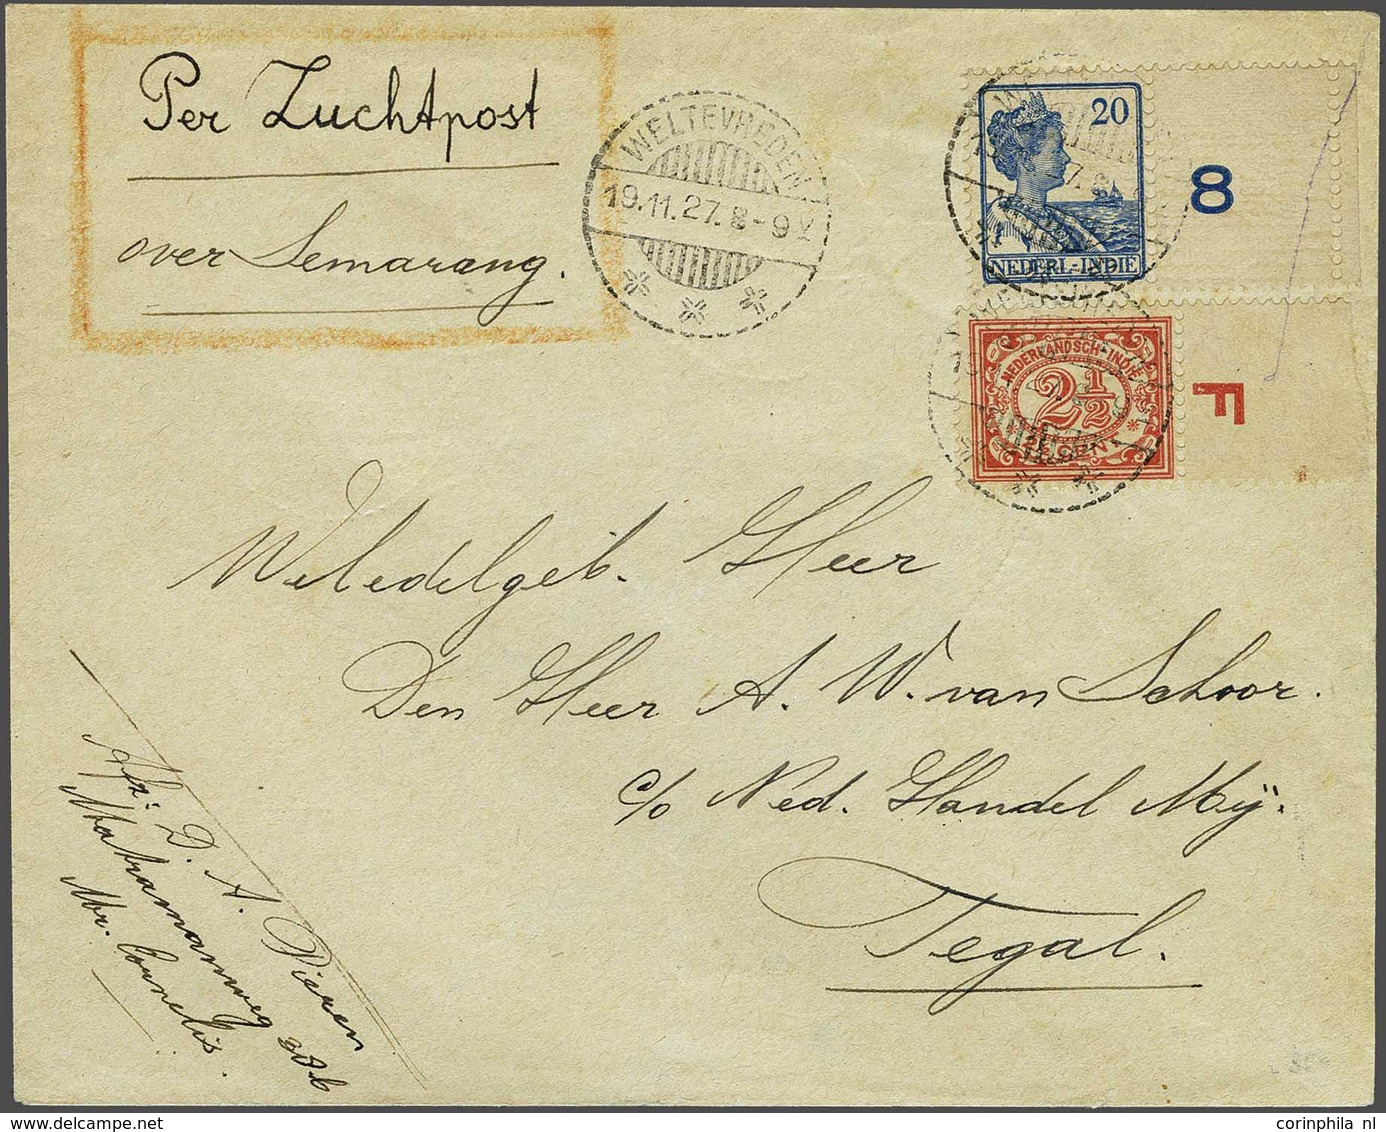 Per Luchtpost
over Semarang.
WELTEVREDEN
19.11.27. 8-9 V
20
NEDERL.-INDIE
8
NEDERLANDSCH-INDIË
2 1/2
CENT
F
Weledelgeb. Heer
Den Heer A. W. van Schoor.
c/o Ned. Handel Mij.
Tegal.
Afz: D. A. Pieren
Matramanweg 30b
Mr. Cornelis.
corinphila nl